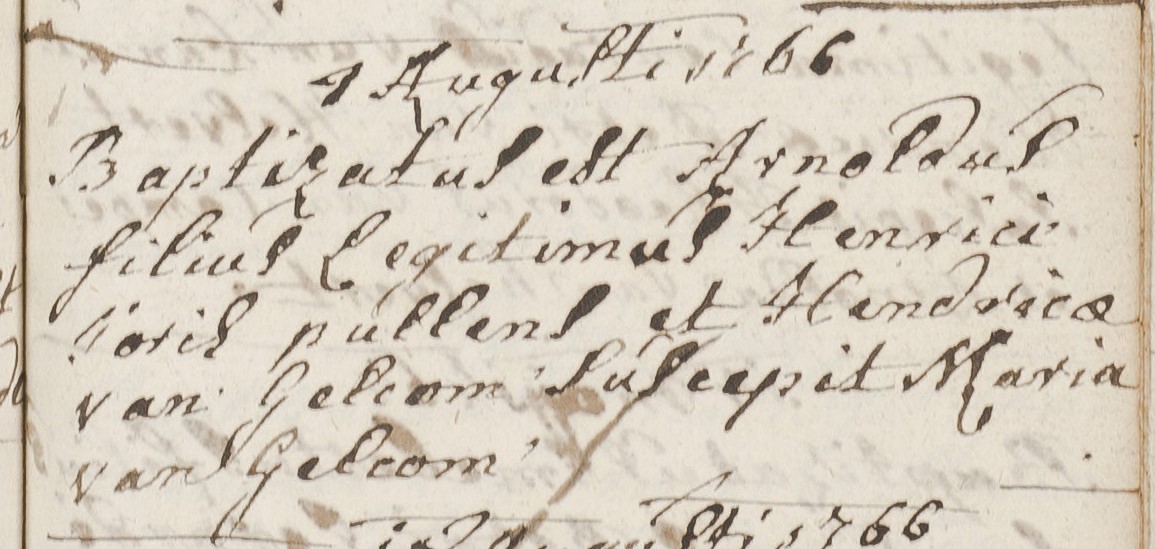 1 Augusti 1766
Baptizatus est Arnoldus
filius Legitimus Henrici
Joris pullens et Hendricæ
van Gelcom Suscepit Maria
van Gelcom
Augusti 1766